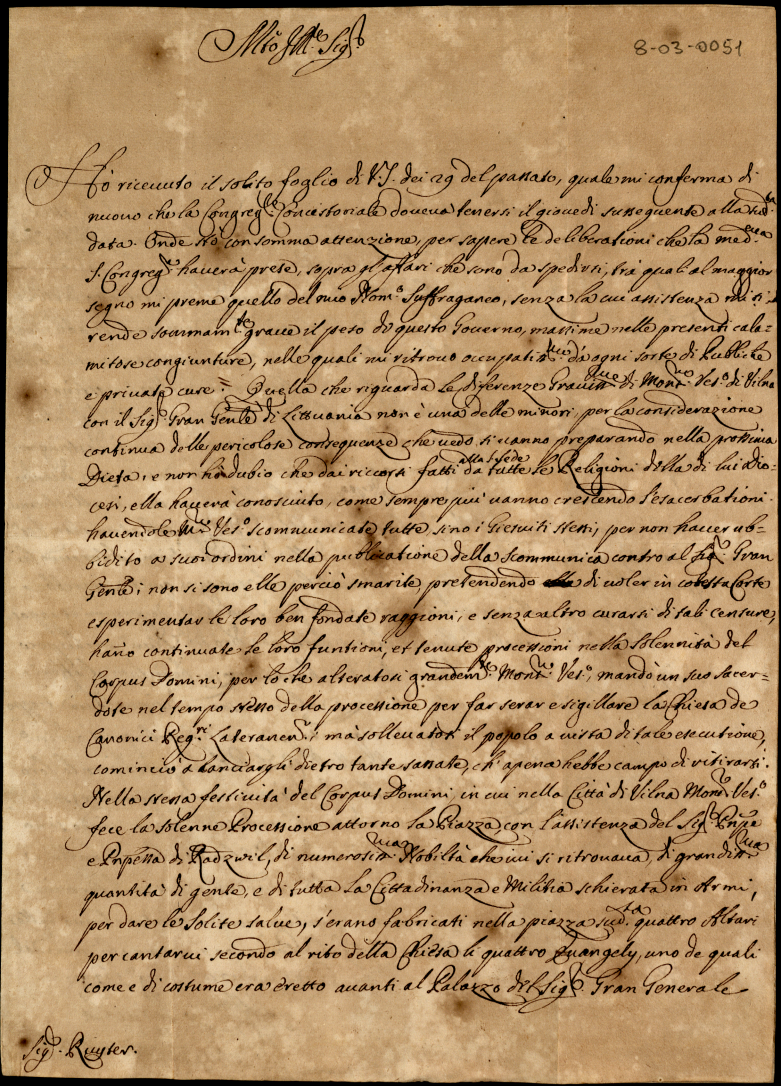 Mto Ille Sigr
8-03-0051
Hò riceuuto il solito foglio di V.S. dei 29 del passato, quale mi conferma di
nuouo che la Congregne Concistoriale doueua tenersi il giouedi susseguente alla sudta
data. Onde stò con somma attenzione, per sapere le deliberationi che la medma
S. Congregne hauerà prese, sopra gl'affari che sono da spedirsi, trà quali al maggior
segno mi preme quello del mio Nomo Suffraganeo, senza la cui assistenza mi si
rende sommamte graue il peso di questo Gouerno, massime nelle presenti cala=
mitose congiunture, nelle quali mi ritrouo occupatissmo da ogni sorte di Publiche
e priuate cure = Quella che riguarda le diferenze Grauissme di Monre Veso di Vilna
con il Sigr Gran Genle di Littuania non è una delle minori, per la considerazione
continua delle pericolose consequenze che uedo si uanno preparando nella prossima
Dieta, e non hò dubio che dai ricorsi fatti alla S. Sede da tutte le Religioni della di lui dio=
cesi, ella hauerà conosciuto, come sempre più uanno crescendo l'esacerbationi.
hauendole Mre Veso scommunicate tutte sino i Giesuiti stessi, per non hauer ub=
bidito a suoi ordini nella publicatione della scommunica contro al Sigr Gran
Genle; non si sono elle perciò smarite pretendendo di uoler in cotesta Corte
esperimentar le loro ben fondate raggioni, e senza altro curarsi di tali censure,
hanno continuate le loro funtioni, et tenute processioni nella solennità del
Corpus Domini, per lo che alteratosi grandemte Monre Veso, mandò un suo sacer=
dote nel tempo stesso della processione per far serar e sigillare la Chiesa de
Canonici Regri Lateranensi; mà solleuatosi il popolo a uista di tale esecutione,
cominciò a lanciargli dietro tante sassate, ch'apena hebbe campo di ritirarsi.
Nella stessa festiuità del Corpus Domini in cui nella Città di Vilna Monre Veso
fece la solenne Processione attorno la Piazza, con l'assistenza del Sigr Pnpe
e Pnpessa di Radzwil, di numerosissma Nobiltà che iui si ritrouaua, di grandissma
quantità di gente, e di tutta la Cittadinanza e Militia schierata in Armi,
per dare le solite salue, s'erano fabricati nella piazza sudta quattro Altari
per cantarui secondo al rito della Chiesa li quattro Euangely, uno de quali
come e di costume era eretto auanti al Palazzo del Sigr Gran Generale
Sigr. Ruyter.